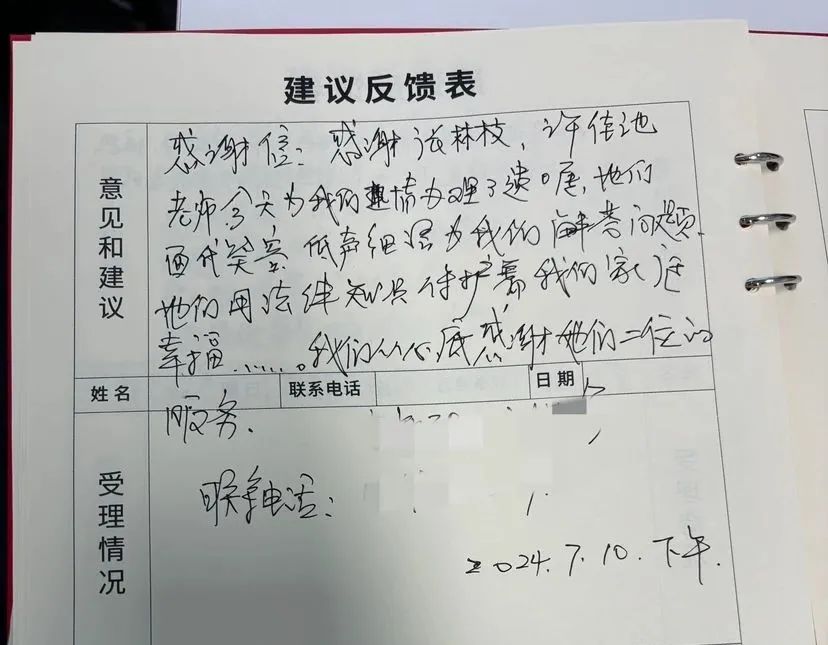 建议反馈表
意见和建议
感谢信：感谢张林枝，许佳池
老师今天为我们热情办理了遗嘱，她们
面代笑容 低声细语为我们解答问题，
她们用法律知识保护着我们家庭
幸福……。我们从心底感谢她们二位的
姓名 联系电话 日期
服务.
受理情况
联系电话：
2024.7.10.下午.